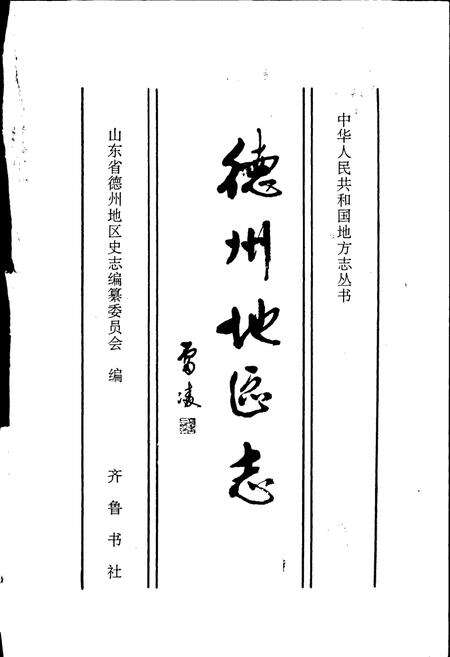 中华人民共和国地方志丛书
德州地区志
山东省德州地区史志编纂委员会 编
齐鲁书社